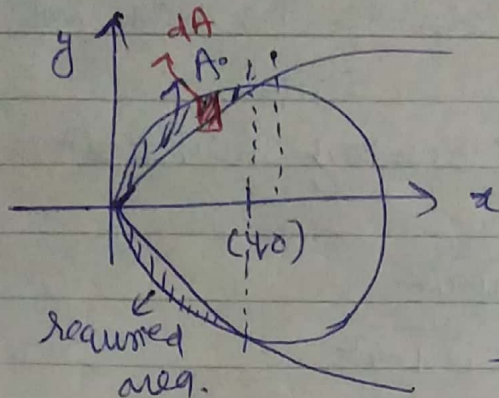 dA
y
A
x
(4,0)
required
area.